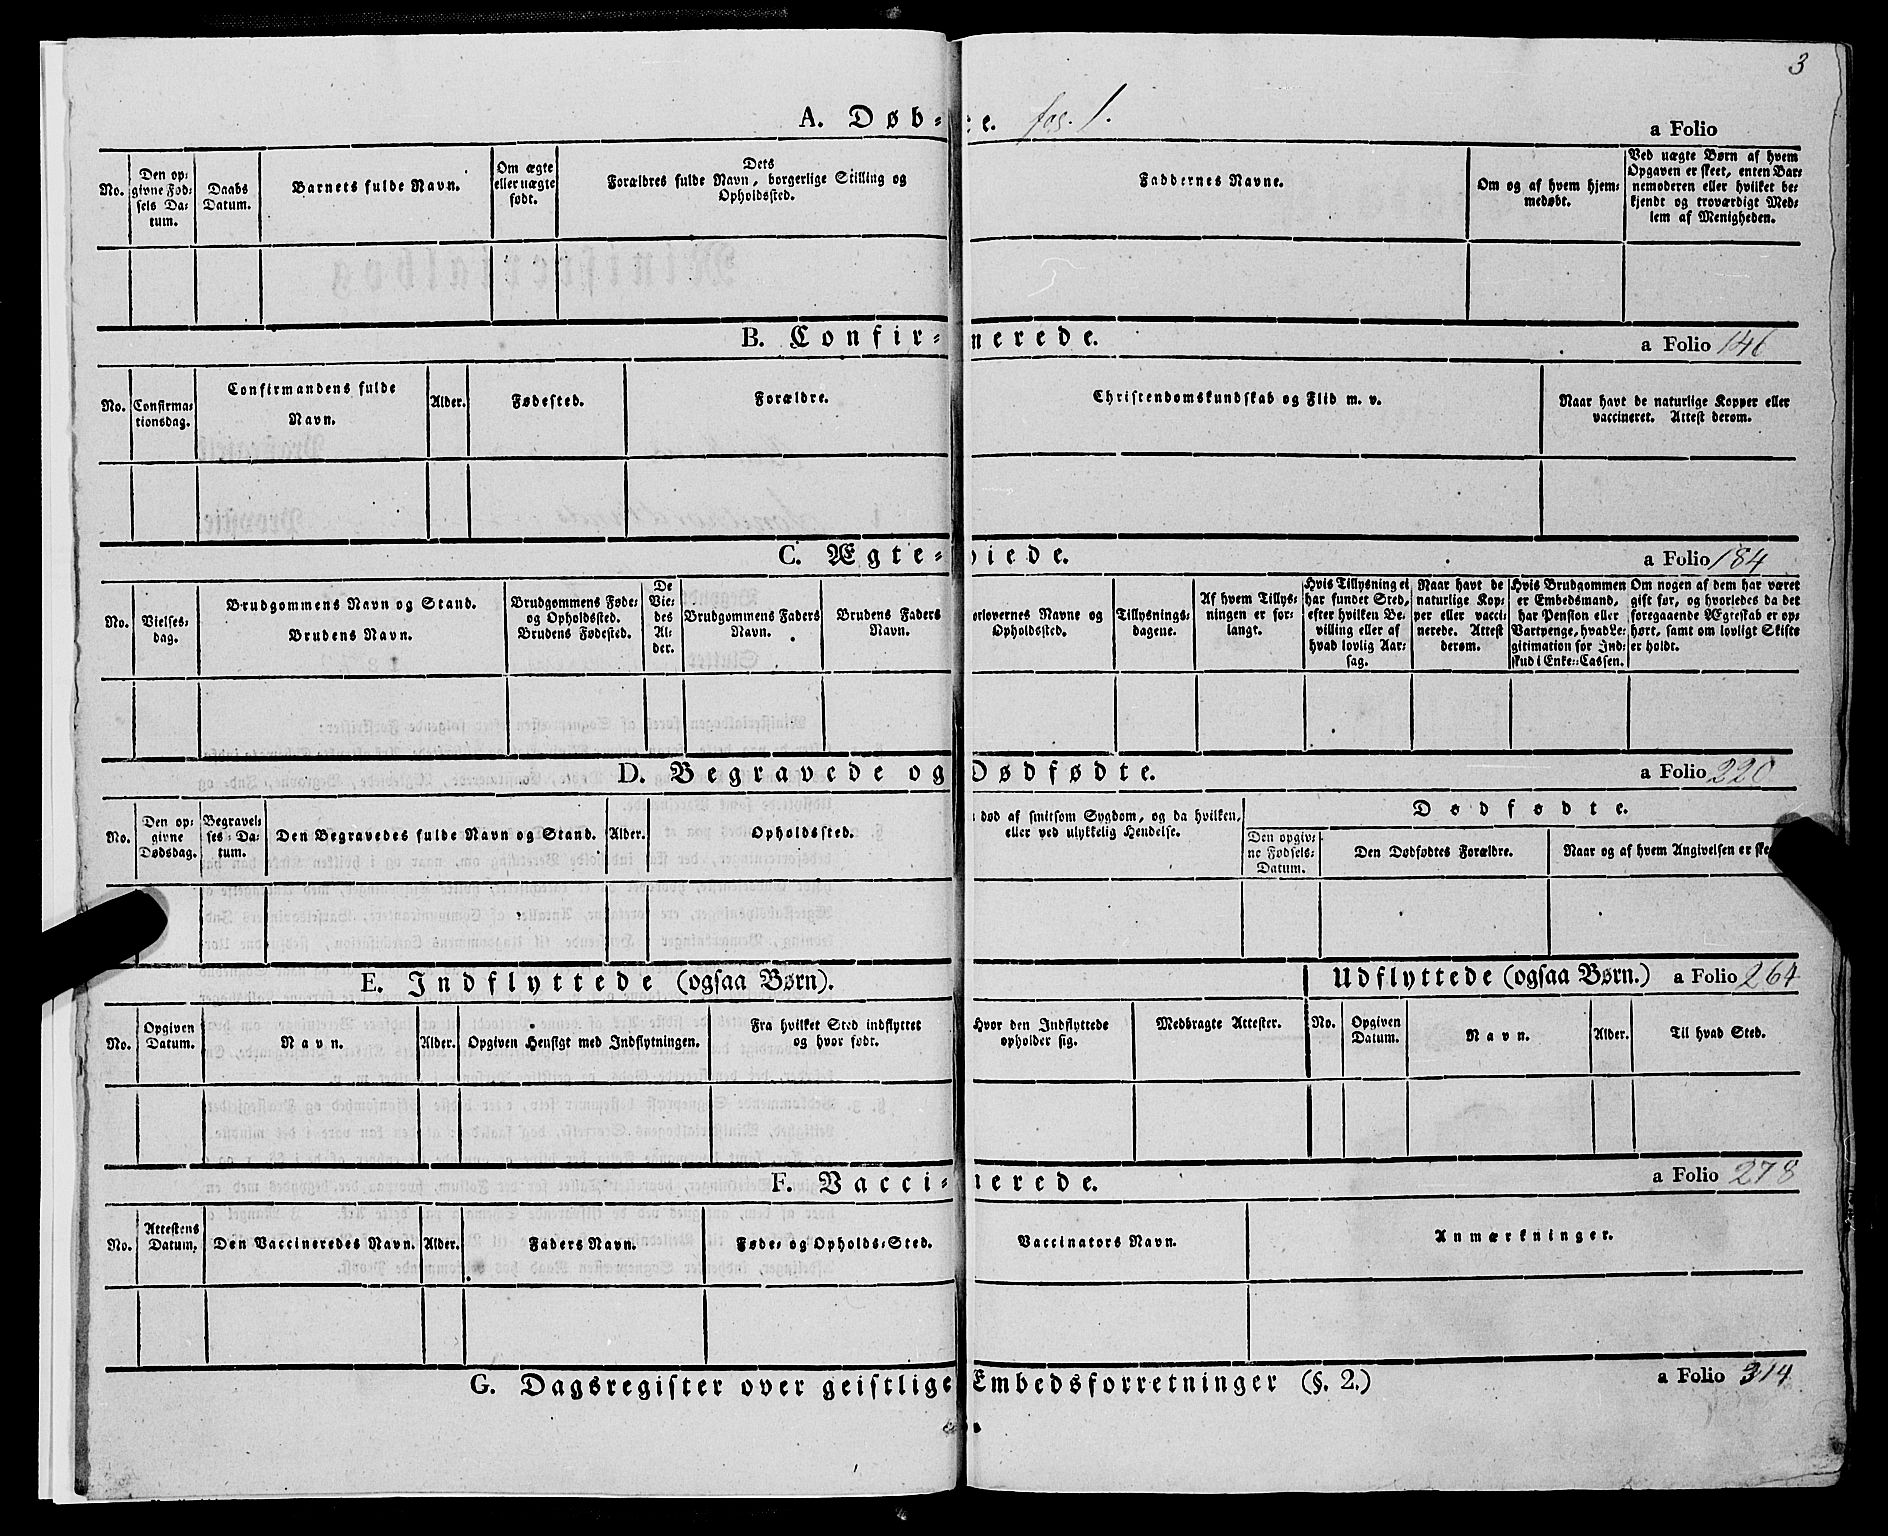 3
A. Døb-te. fol. 1.
a Folio
No.
Den op-
givne Fød-
sels Da-
tum.
Daabs
Datum.
Barnets fulde Navn.
Om ægte
eller uægte
født.
Dets
Forældres fulde Navn, borgerlige Stilling og
Opholdssted.
Faddernes Navne.
Om og af hvem hjem-
medøbt.
Ved uægte Børn af hvem
Opgaven er skeet, enten Bar-
nemoderen eller hvilket be-
kjendt og troværdigt Med-
lem af Menigheden.
B. Confir-merede.
a Folio 146
No.
Confirma-
tionsdag.
Confirmandens fulde
Navn.
Alder.
Fødested.
Forældre.
Christendomskundskab og Flid m. v.
Naar havt de naturlige Kopper eller
vaccineret. Attest derom.
C. Ægte-viede.
a Folio 184
No.
Vielses-
dag.
Brudgommens Navn og Stand.
Brudens Navn.
Brudgommens Føde-
og Opholdssted.
Brudens Fødested.
De
Vie-
des
Al-
der.
Brudgommens Faders
Navn.
Brudens Faders
Navn.
orlovernes Navne og
Opholdssted.
Tillysnings-
dagene.
Af hvem Tillys-
ningen er for-
langt.
Hvis Tillysning ei
har fundet Sted,
efter hvilken Be-
villing eller af
hvad lovlig Aar-
sag.
Naar havt de
naturlige Kop-
per eller vacci-
nerede. Attest
derom.
Hvis Brudgommen
er Embedsmand,
har Pension eller
Vartpenge, hvad Le-
gitimation for Ind-
skud i Enke-Cassen.
Om nogen af dem har været
gift før, og hvorledes da det
foregaaende Ægteskab er op-
hørt, samt om lovligt Skifte
er holdt.
D. Begravede og Dødfødte.
a Folio 220
No.
Den op-
givne
Dødsdag.
Begravel-
ses-Da-
tum.
Den Begravedes fulde Navn og Stand.
Alder.
Opholdssted.
død af smitsom Sygdom, og da hvilken,
eller ved ulykkelig Hendelse.
Dødfødte.
Den opgiv-
ne Fødsels-
Datum.
Den Dødfødtes Forældre.
Naar og af hvem Angivelsen er ske
E. Indflyttede (ogsaa Børn).
Udflyttede (ogsaa Børn.) a Folio 264
No.
Opgiven
Datum.
Navn.
Alder.
Opgiven Hensigt med Indflytningen.
Fra hvilket Sted indflyttet
og hvor født.
Hvor den Indflyttede
opholder sig.
Medbragte Attester.
No.
Opgiven
Datum.
Navn.
Alder.
Til hvad Sted.
F. Vacci-nerede.
a Folio 278
No.
Attestens
Datum.
Den Vaccineredes Navn.
Alder.
Faders Navn.
Føde- og Opholds-Sted.
Vaccinators Navn.
Anmærkninger.
G. Dagsregister over geistlige Embedsforretninger (§. 2.)
a Folio 314